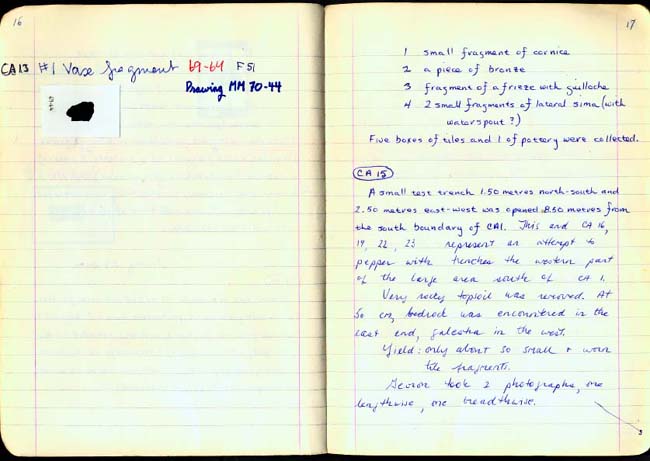 16
CA13 #1 Vase fragment 69-64 F51
Drawing MM 70-44
17
1 small fragment of cornice
2 a piece of bronze
3 fragment of a frieze with guilloche
4 2 small fragments of lateral sima (with
waterspout?)
Five boxes of tiles and 1 of pottery were collected.
CA 15
A small test trench 1.50 metres north-south and
2.50 metres east-west was opened 8.50 metres from
the south boundary of CA1. This and CA 16,
19, 22, 23 represent an attempt to
pepper with trenches the western part
of the large area south of CA 1.
Very rocky topsoil was removed. At
50 cm, bedrock was encountered in the
east end, galestra in the west.
Yield: only about 50 small + worn
tile fragments.
took 2 photographs, one
lengthwise, one breadthwise.